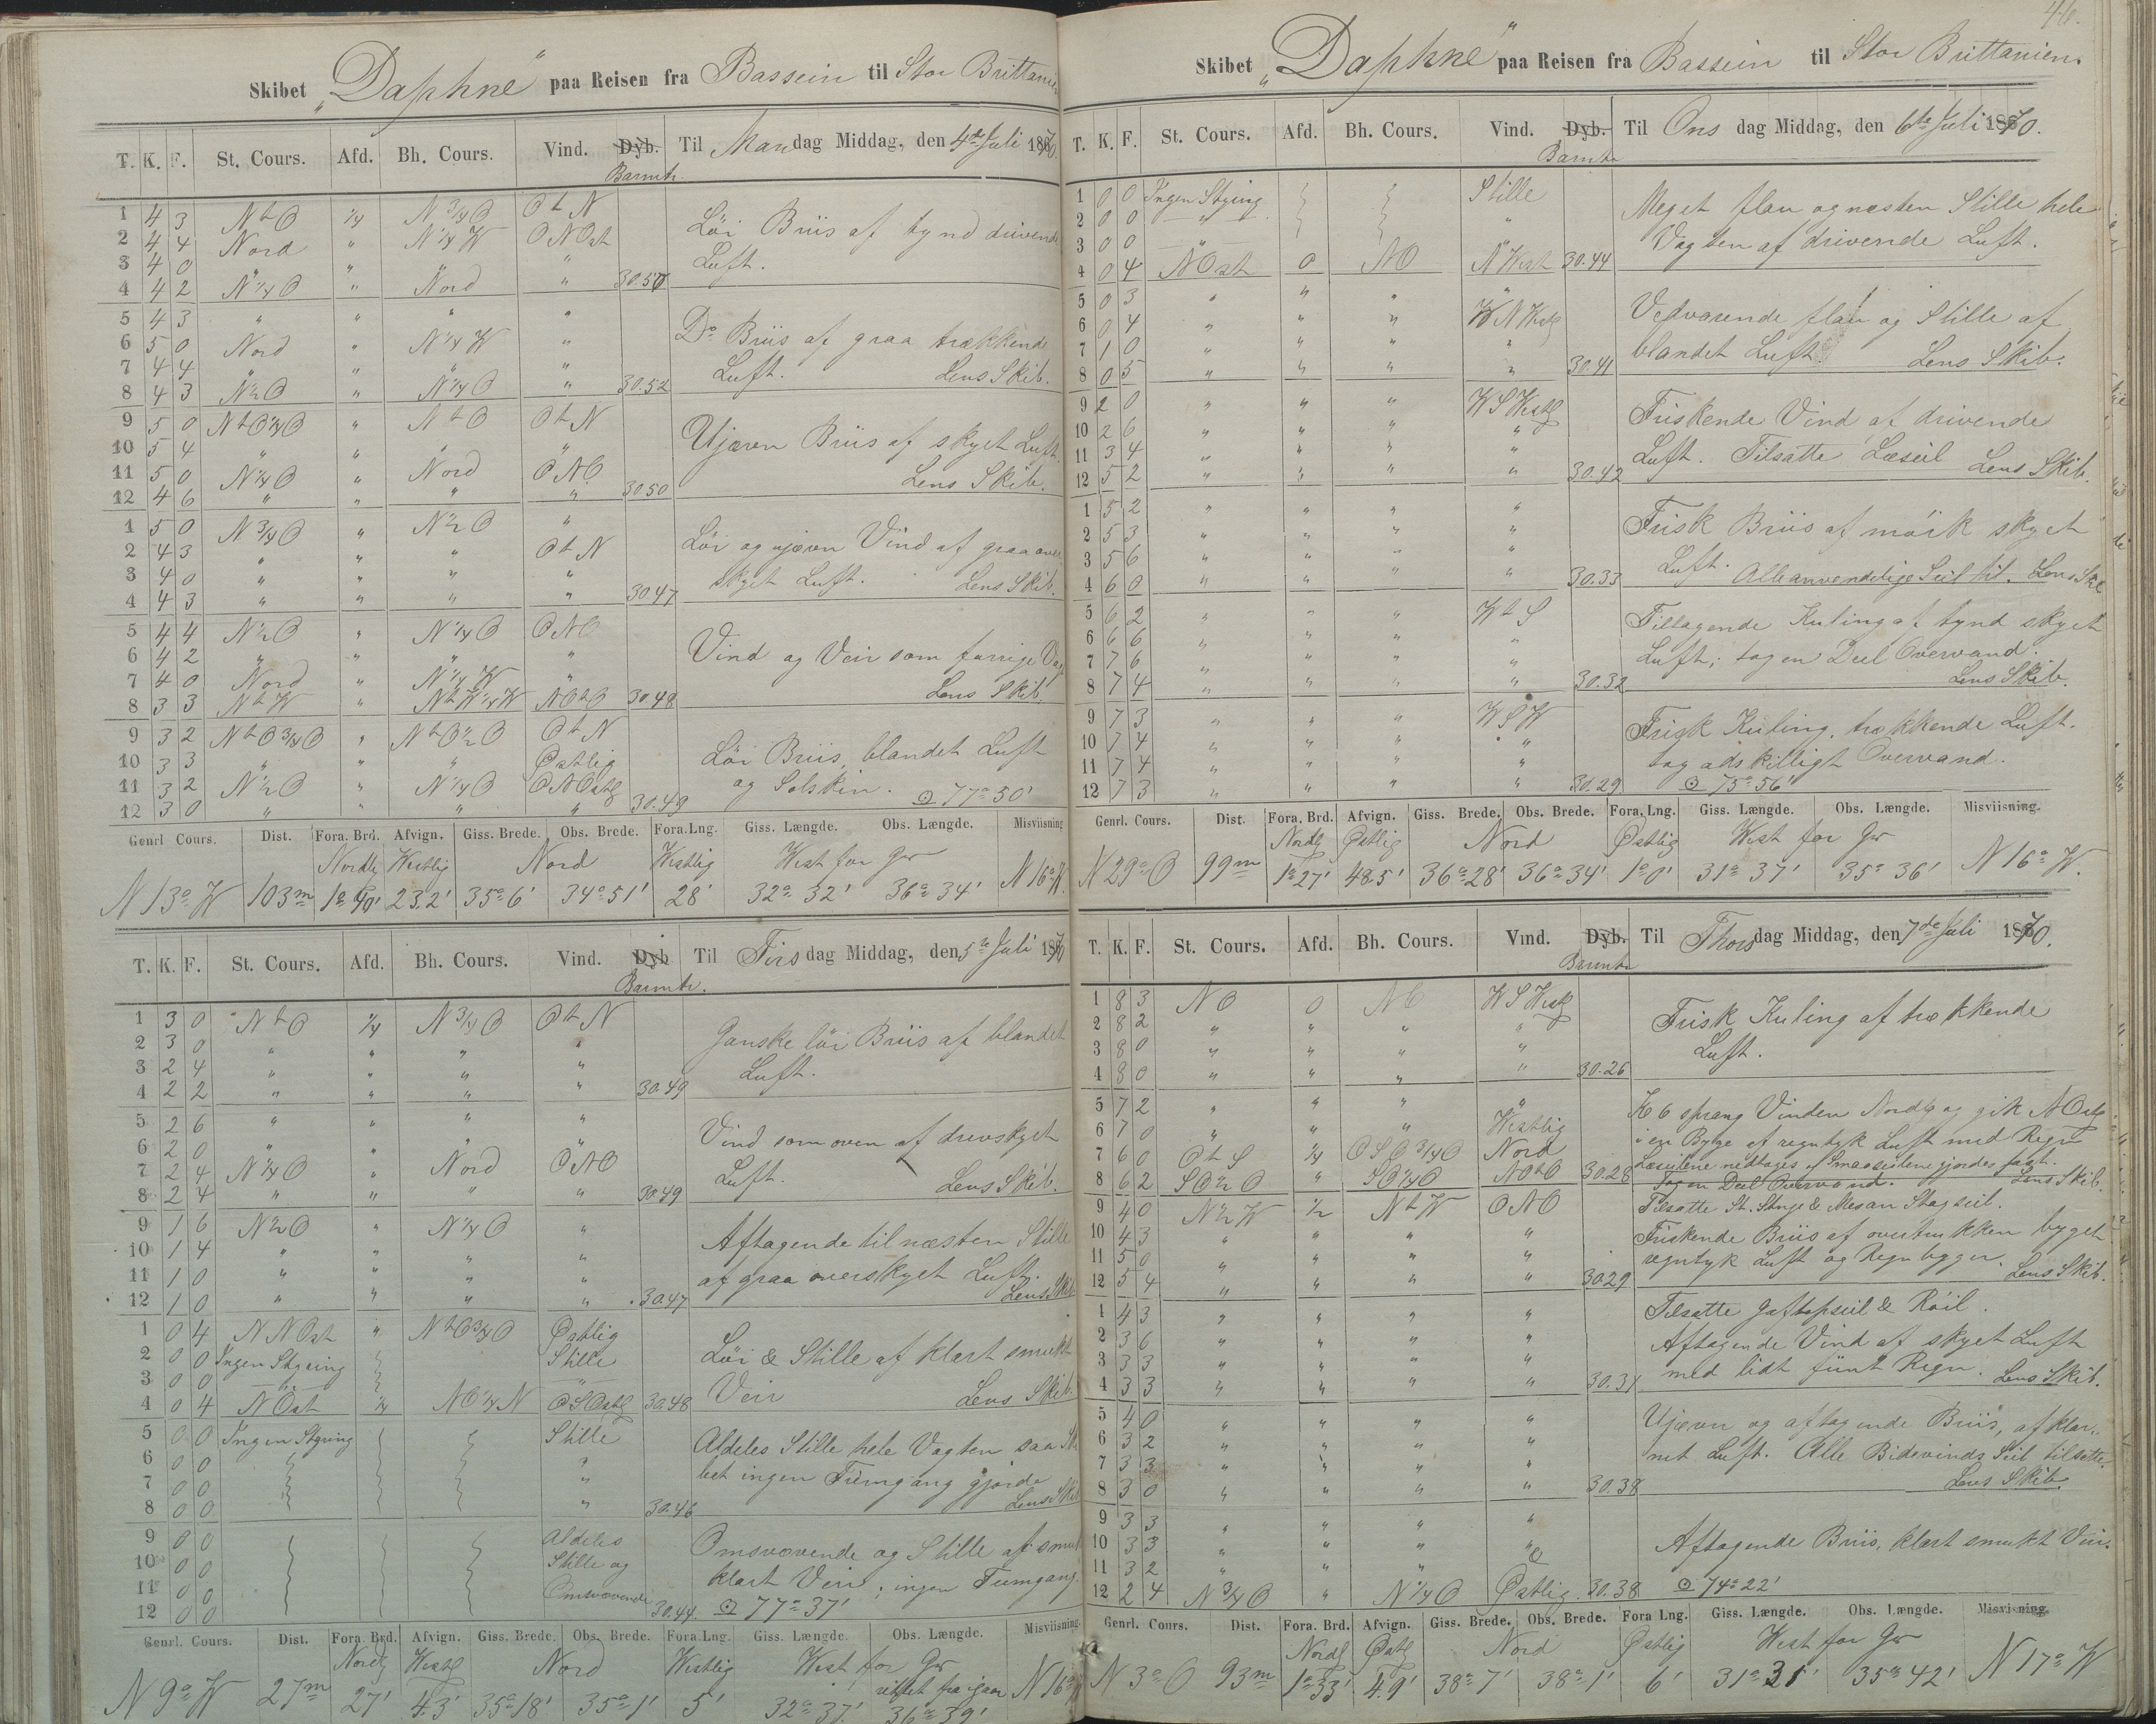 Skibet „Daphne“ paa Reisen fra Bassein til Stor Brittanien
T. K. F. St. Cours. Afd. Bh. Cours. Vind. Dyb. Til Mandag Middag, den 4de Juli 1870.
Barmtr.
1 4 3 NtO ¼ N¾O OtN
2 4 4 Nord " N¼W ONOst
3 4 0 " " " "
4 4 2 N¼O " Nord " 30.50
Löi Briis af tynd drivende
Luft.
5 4 3 " " " "
6 5 0 Nord " N¼W "
7 4 4 " " " "
8 4 3 N½O " N¼O " 30.52
Do Briis af graa trækkende
Luft. Lens Skib.
9 5 0 NtO¼O " NtO OtN
10 5 4 " " " "
11 5 0 N¼O " Nord ONO
12 4 6 " " " " 30.50
Ujævn Briis af skyet Luft.
Lens Skib.
1 5 0 N¾O " N½O "
2 4 3 " " " OtN
3 4 0 " " " "
4 4 3 " " " " 30.47
Löi og ujævn Vind af graa over
skyet Luft. Lens Skib.
5 4 4 N½O " N¼O ONO
6 4 2 " " " "
7 4 0 Nord " N¼W "
8 3 3 NtW " NtW¼W NOtO 30.48
Vind og Veir som forrige Vagt
Lens Skib.
9 3 2 NtO¾O " NtO½O OtN
10 3 3 " " " Østlig
11 3 2 N½O " N¼O ONOstlg
12 3 0 " " " " 30.49
Löi Briis, blandet Luft
og Solskin. ⊙ 77° 30'
Genrl Cours. Dist. Fora. Brd. Afvign. Giss. Brede. Obs. Brede. Fora.Lng. Giss. Længde. Obs. Længde. Misviisning
Nordlg Westlig Nord Westlig West for Gr
N 13° W 103m 1° 40' 23.2' 35° 6' 34° 51' 28' 32° 32' 36° 34' N 16° W.
T. K. F. St. Cours. Afd. Bh. Cours. Vind. Dyb Til Tirsdag Middag, den 5te Juli 1870
Barmtr.
1 3 0 NtO ¼ N¾O OtN
2 3 0 " " " "
3 2 4 " " " "
4 2 2 " " " " 30.49
Ganske löi Briis af blandet
Luft.
5 2 6 " " " "
6 2 0 " " " "
7 2 4 N¼O " Nord ONO
8 2 4 " " " " 30.49
Vind som oven af drevskyet
Luft. Lens Skib.
9 1 6 N½O " N¼O "
10 1 4 " " " "
11 1 0 " " " "
12 1 0 " " " " 30.47
Aftagende til næsten Stille
af graa overskyet Luft.
Lens Skib
1 0 4 NNOst " NtO¾O Østlig
2 0 0 Ingen Styring Stille
3 0 0 "
4 0 4 NOst ¼ NO¼N OSOstlg 30.48
Löi & Stille af klart smukt
Veir Lens Skib.
5 0 0 Ingen Styring Stille
6 0 0 "
7 0 0 "
8 0 0 " 30.46
Aldeles Stille hele Vagten saa Ski
bet ingen Fremgang gjorde
Lens Skib
9 0 0 Aldeles
10 0 0 Stille og
11 0 0 Omsvævende
12 0 0 30.44.
Omsvævende og Stille af smukt
klart Veir; ingen Fremgang.
⊙ 77° 37'
Genrl. Cours. Dist. Fora. Brd. Afvign. Giss. Brede. Obs. Brede. Fora.Lng. Giss. Længde. Obs. Længde. Misviisning.
Nordlg Westlg Nord Westlig West for Gr
rettet fra igaar
N 9° W 27m 27' 4.3' 35° 18' 35° 1' 5' 32° 37' 36° 39' N 16° W
46.
Skibet „Daphne“ paa Reisen fra Bassein til Stor Brittanien.
T. K. F. St. Cours. Afd. Bh. Cours. Vind. Dyb. Til Onsdag Middag, den 6te Juli 1870.
Barmtr
1 0 0 Ingen Styring Stille
2 0 0 " "
3 0 0 " "
4 0 4 NOst 0 NO NWest 30.44
Meget flau og næsten Stille hele
Vagten af drivende Luft.
5 0 3 " " " "
6 0 4 " " " WNWestlg
7 1 0 " " " "
8 0 5 " " " " 30.41
Vedvarende flau og Stille af
blandet Luft Lens Skib.
9 2 0 " " " WSWestlg
10 2 6 " " " "
11 3 4 " " " "
12 5 2 " " " " 30.42
Friskende Vind af drivende
Luft. Tilsatte Læseil Lens Skib.
1 5 2 " " " "
2 5 3 " " " "
3 5 6 " " " "
4 6 0 " " " " 30.33
Frisk Briis af mörk skyet
Luft. Alle anvendelige Seil til. Lens Skib
5 6 2 " " " WtS
6 6 6 " " " "
7 7 6 " " " "
8 7 4 " " " " 30.32
Tiltagende Kuling af tynd skyet
Luft; tog en Deel Overvand.
Lens Skib.
9 7 3 " " " WSW
10 7 4 " " " "
11 7 4 " " " "
12 7 3 " " " " 30.29
Frisk Kuling, trækkende Luft.
tog adskilligt Overvand.
⊙ 75° 56'
Genrl. Cours. Dist. Fora. Brd. Afvign. Giss. Brede. Obs. Brede. Fora. Lng. Giss. Længde. Obs. Længde. Misviisning.
Nordlg Østlig Nord Østlig West for Gr
N 29° O 99m 1° 27' 48.5' 36° 28' 36° 34' 1° 0' 31° 37' 35° 36' N 16° W.
T. K. F. St. Cours. Afd. Bh. Cours. Vind. Dyb. Til Thorsdag Middag, den 7de Juli 1870.
Barmtr
1 8 3 NO 0 NO WSWestlg
2 8 2 " " " "
3 8 0 " " " "
4 8 0 " " " " 30.26
Frisk Kuling af trækkende
Luft.
5 7 2 " " " "
6 7 0 " " " Westlig
7 6 0 OtS ¼ OSO¾O Nord
8 6 2 SO½O " SO¼O NOtO 30.28
Kl 6 sprang Vinden Nordlg og gik NOstlg
i en Byge af regntyk Luft med Regn
Læseilene nedtages & Smaaseilene gjordes fast.
Tog en Deel Overvand. Lens Skib.
9 4 0 N½W ½ NtW ONO
10 4 3 " " " "
11 5 0 " " " "
12 5 4 " " " " 30.29
Tilsatte St. Stænge & Mesan Stagseil.
Friskende Briis af overtrukken byget
regntyk Luft og Regn bygger. Lens Skib.
1 4 3 " " " "
2 3 6 " " " "
3 3 3 " " " "
4 3 3 " " " " 30.31
Tilsatte Gaftopseil & Röil.
Aftagende Vind af skyet Luft
med lidt fiint Regn. Lens Skib.
5 4 0 " " " "
6 3 2 " " " "
7 3 3 " " " "
8 3 0 " " " " 30.38
Ujævn og aftagende Briis, af klar-
net Luft. Alle Bidevinds Seil tilsatte.
Lens Skib.
9 3 3 " " " "
10 3 3 " " " "
11 3 2 " " "
12 2 4 N¾O " N¼O Østlig 30.38
Aftagende Briis, klart smukt Veir.
⊙ 74° 22'
Genrl. Cours. Dist. Fora. Brd. Afvign. Giss. Brede. Obs. Brede. Fora Lng. Giss. Længde. Obs. Længde. Misvisning.
Nordlg Østlg Nord Østlig West for Gr
N 3° O 93m 1° 33' 4.9' 38° 7' 38° 1' 6' 31° 31' 35° 42' N 17° W